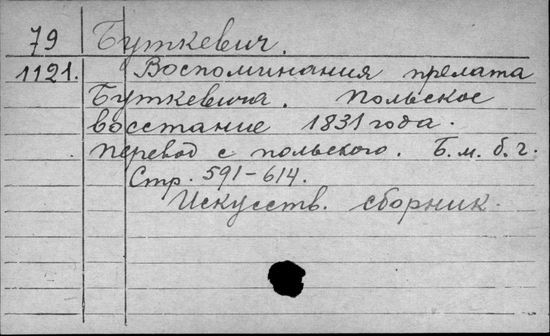 79 Буткевич.
1121. Воспоминания прелата
Буткевича. Польское
восстание 1831 года.
Перевод с польского. Б.м.б.г.
Стр. 591-614.
Искусств. сборник.